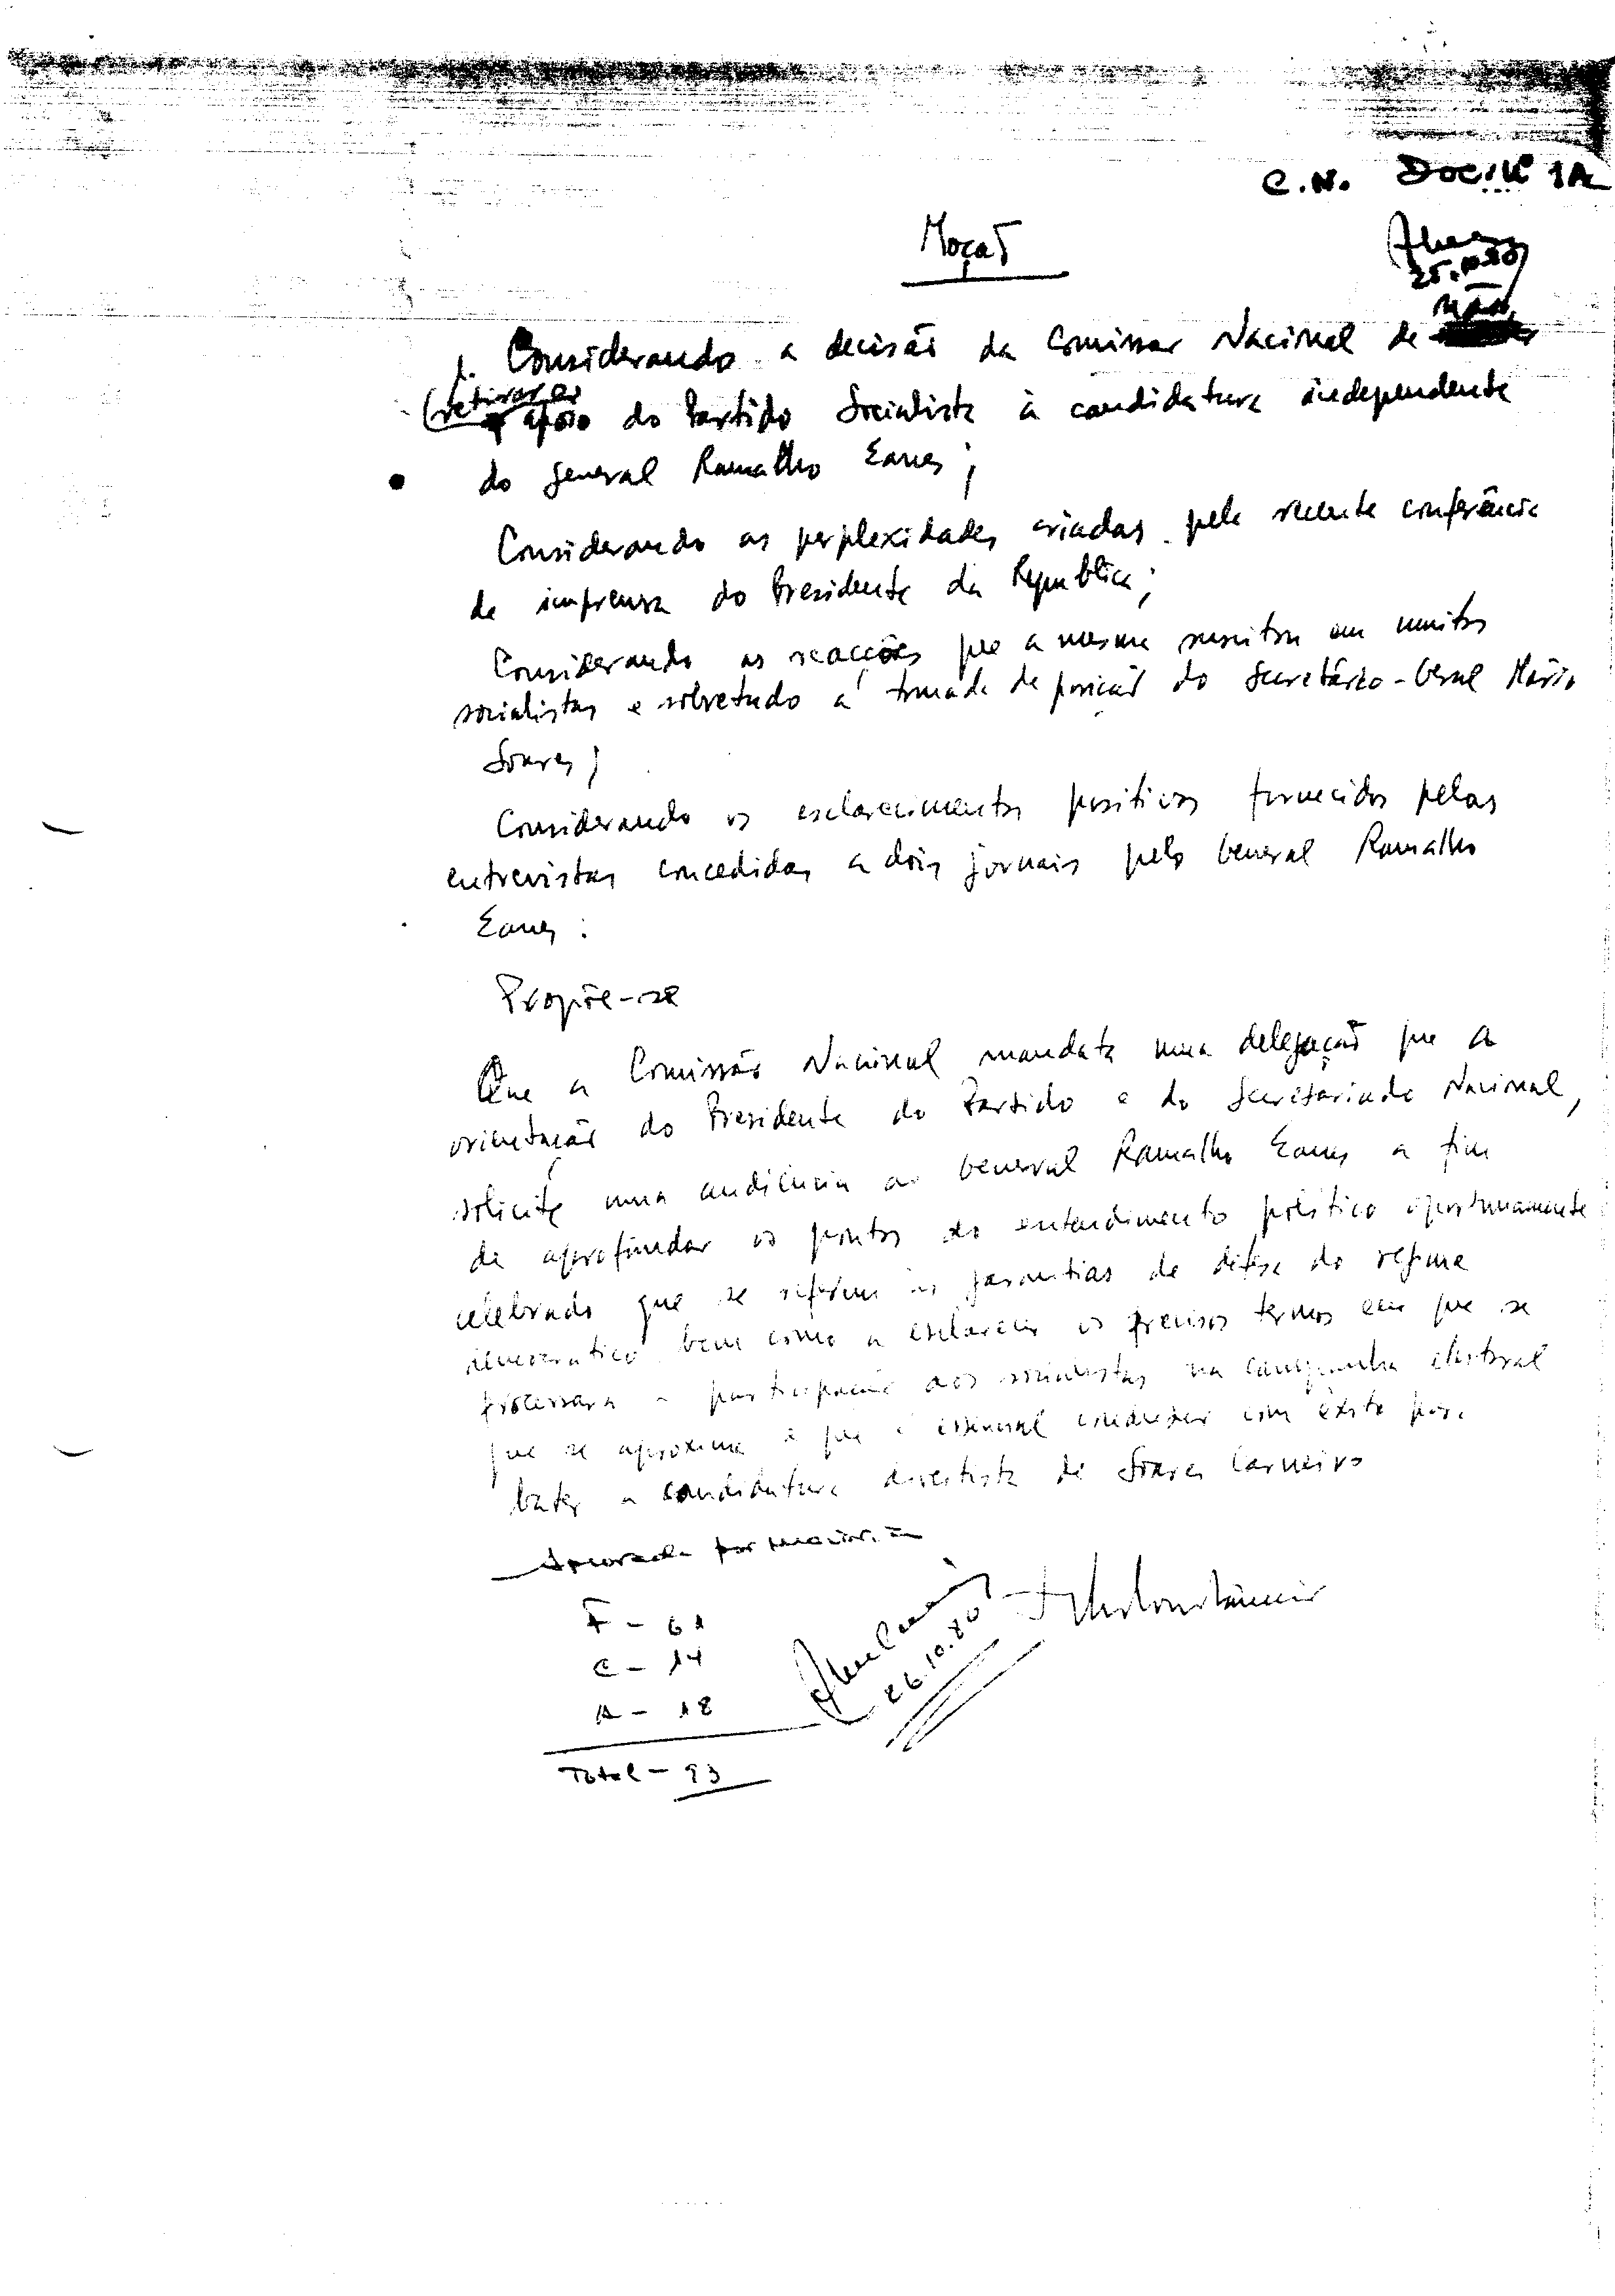 C.N. Doc. Nº 1A
Moção
25.10.80
não
1. Considerando a decisão da Comissão Nacional de
(retirar o
apoio do Partido Socialista à candidatura independente
do General Ramalho Eanes;
Considerando as perplexidades criadas pela recente conferência
de imprensa do Presidente da Republica;
Considerando as reacções que a mesma suscitou em muitos
socialistas e sobretudo a tomada de posição do Secretário-Geral Mário
Soares;
Considerando os esclarecimentos positivos fornecidos pelas
entrevistas concedidas a dois jornais pelo General Ramalho
Eanes:
Propõe-se
Que a Comissão Nacional mandate uma delegação que a
orientação do Presidente do Partido e do Secretariado Nacional,
solicite uma audiência ao General Ramalho Eanes a fim
de aprofundar os pontos do entendimento político oportunamente
celebrado que se referem às garantias de defesa do regime
democrático bem como a esclarecer os precisos termos em que se
processará a participação dos socialistas na campanha eleitoral
que se aproxima e que é essencial conduzir com êxito para
bater a candidatura de Soares Carneiro
Aprovada por maioria
F - 61
C - 14
A - 18
26.10.80
Total - 93